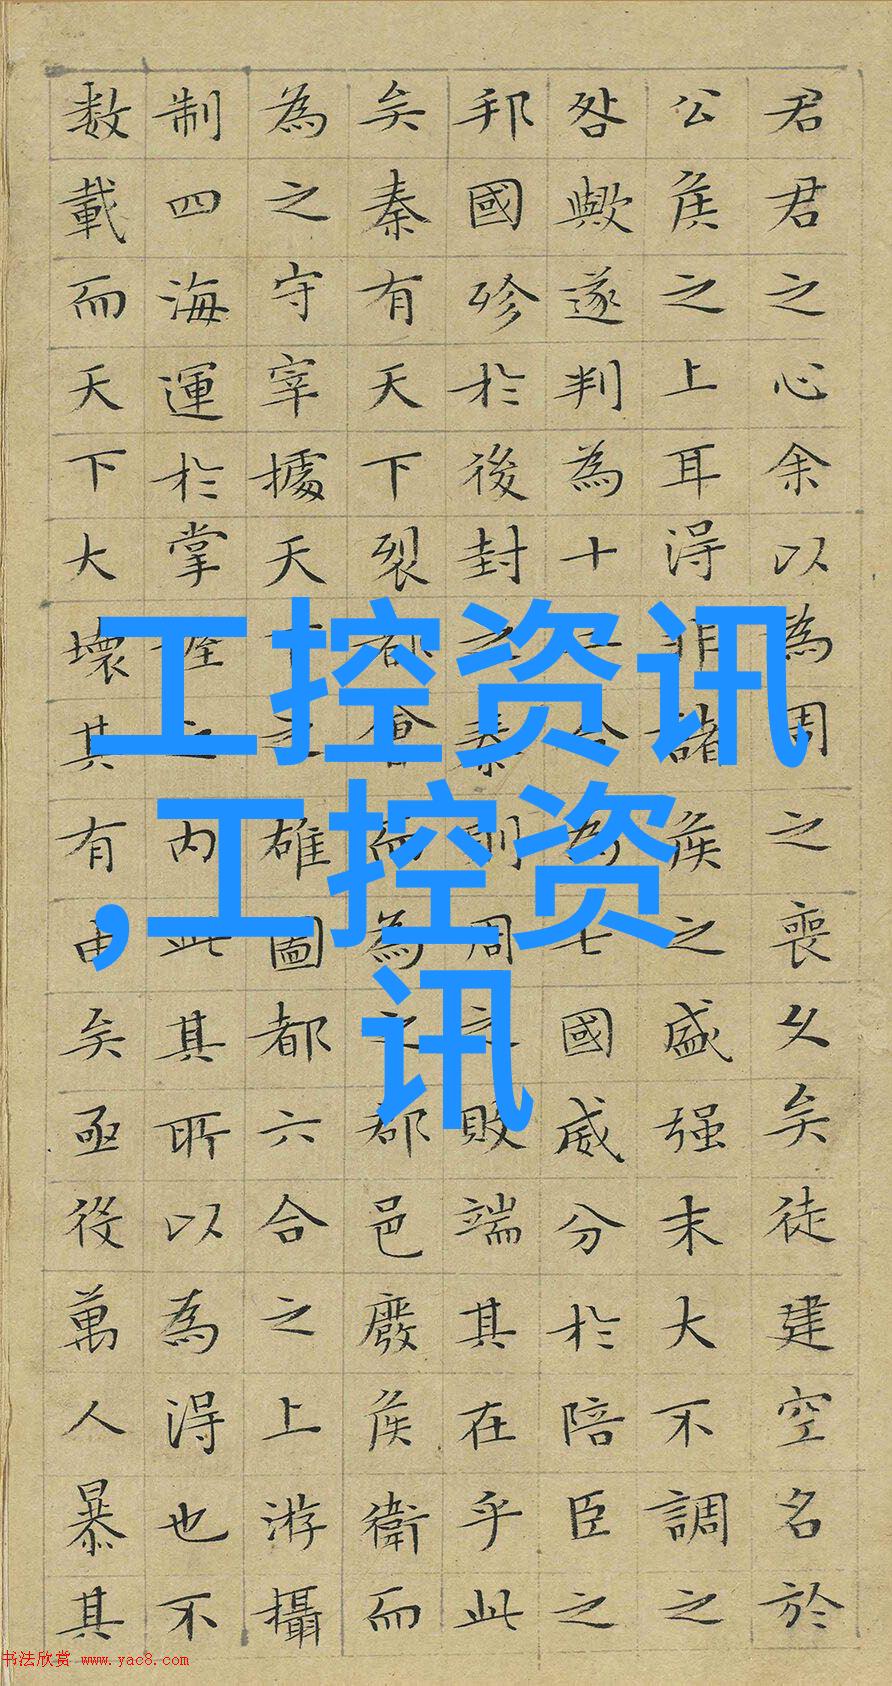 君君之心余以為周之喪久矣徒建空名於
公侯之上耳得非諸侯之盛强末大不調之
咎歟遂判為十二合為七國威分於陪臣之
邦國殄於後封之秦則周之敗端其在乎此
矣秦有天下裂都會而為之郡邑廢侯衛而
為之守宰據天下之雄圖都六合之上游攝
制四海運於掌握之内此其所以為得也不
数載而天下大壞其有由矣亟役萬人暴其
工控资讯
,工控资
讯
书法欣赏 www.yac8.com